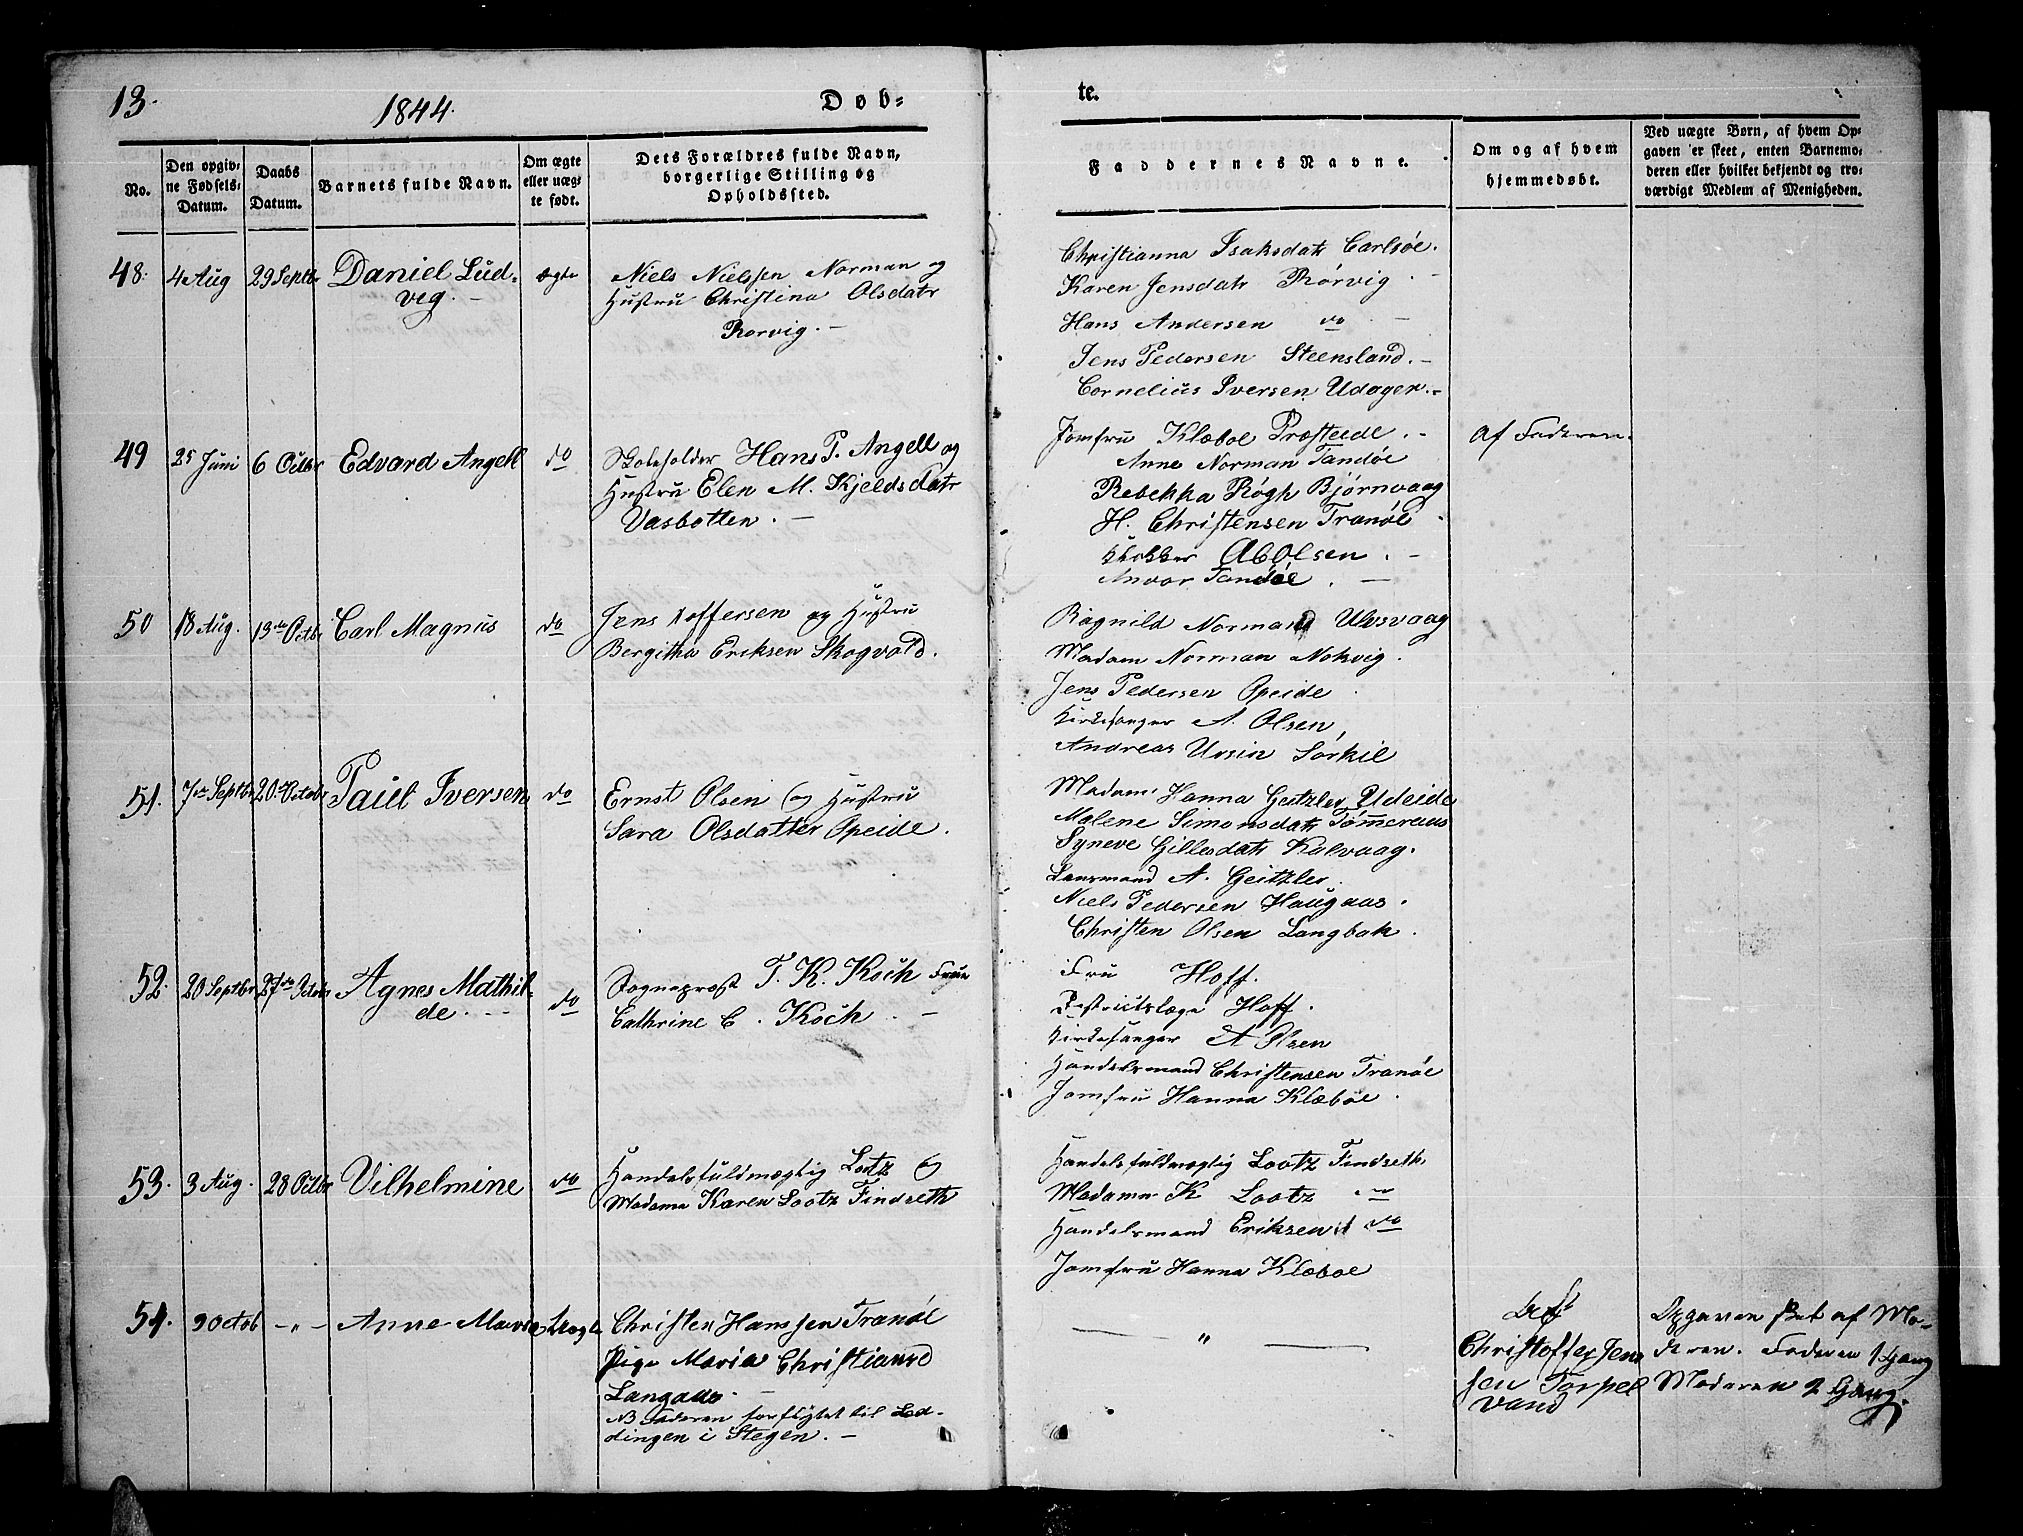 13.
1844.
Døb-
te.
No.
Den opgiv-
ne Fødsels-
Datum.
Daabs
Datum.
Barnets fulde Navn.
Om ægte
eller uæg-
te født.
Dets Forældres fulde Navn,
borgerlige Stilling og
Opholdssted.
Faddernes Navne.
Om og af hvem
hjemmedøbt.
Ved uægte Børn, af hvem Op-
gaven er skeet, enten Barnemo-
deren eller hvilket bekjendt og tro-
værdigt Medlem af Menigheden.
48. 4 Aug 29 Septbr Daniel Lud-
vig. -
ægte
Niels Nielssen Norman og
Hustru Christina Olsdatr
Rørvig. -
Christianna Isaksdatr Carlsøe.
Karen Jensdatr Rørvig -
Hans Andersen do -
Jens Pedersen Steensland. -
Cornelius Iversen Udager. -
49 25 Juni 6 Octbr Edvard Angell do
Skoleholder Hans P. Angell og
Hustru Elen M. Kjeldsdatr
Vasbotten. -
Jomfru Klæboe Præsteide. -
Anne Norman Tandøe
Rebekka Røgh Bjørnvaag
H. Christensen Tranøe
Klokker A Olsen. -
Anvor Tandøe. -
Af Faderen.
50 18 Aug. 13de Octbr Carl Magnus do
Jens Toffersen og Hustru
Bergitha Eriksen Skogvold.
Ragnild Normand Ulvsvaag
Madam Norman Nokvig.
Jens Pedersen Opeide
Kirkesanger A. Olsen,
Andreas Ursin Sørkil
51. 7de Septbr 20de Octobr Paul Iversen do
Ernst Olsen og Hustru
Sara Olsdatter Opeide.
Madam Hanna Geitzler Udeide
Malene Simonsdatr Tømmeraas
Syneve Gillesdatr Kalvaag.
Lensmand A. Geitzler.
Niels Pedersen Haugaas.
Christen Olsen Langbak.
52. 20 Septbr 27de Octobr Agnes Mathil-
de. - -
do
Sogneprest T. K. Koch Frue
Cathrine C. Koch. -
Fru Hoff.
Destrictslæge Hoff.
Kirkesanger A Olsen
Handelsmand Christensen Tranøe
Jomfru Hanna Klæboe.
53. 3 Aug. 28 Octbr Vilhelmine do
Handelsfuldmægtig Lootz og
Madame Karen Lootz Findseth
Handelsfuldmægtig Lootz Findseth
Madame K Lootz "
Handelsmand Eriksen do
Jomfru Hanna Klæboe
54. 9 Octob - " - Anne Maria uægte
Christen Hanssen Tranøe
Pige Maria Christiansd
Langado. -
NB Faderen forflytet til Led-
dingen i Stegen. -
"
Christoffer Jens
sen Torpel
vand
Opgaven skeet af Mo-
deren. Faderen 1 Gang
Moderen 2 Gang.